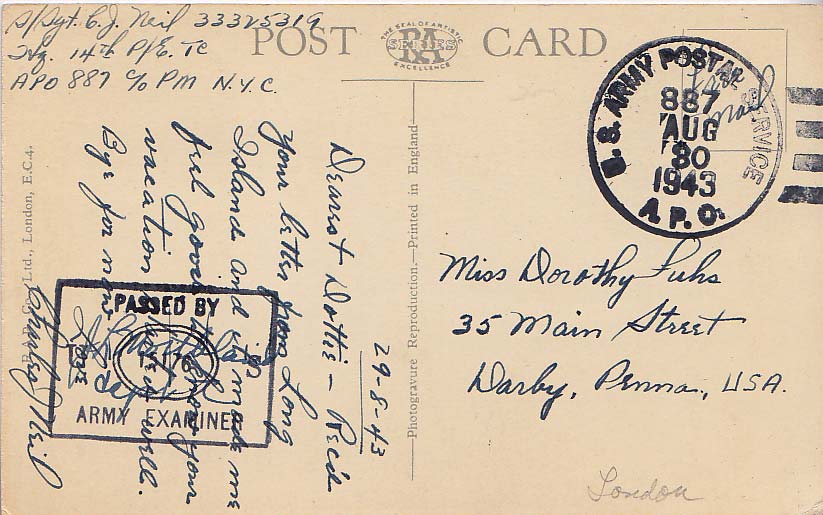 S/Sgt. C. J. Neil 33325319
Hq. 14th P/E. TC
APO 887 c/o PM N.Y.C.
POST CARD
THE SEAL OF ARTISTIC
RA
SERIES
EXCELLENCE
Free
Mail
U. S. ARMY POSTAL SERVICE
887
AUG
30
1943
A. P. O.
29-8-43
Dearest Dottie – Rec'd
your letter from Long
Island and it made me
feel good to know your
vacation went well.
Bye for now.
Charles Neil
PASSED BY
BASE
ARMY EXAMINER
Co., Ltd., London, E.C.4.
Photogravure Reproduction.—Printed in England
Miss Dorothy Fuhs
35 Main Street
Darby, Penna., USA.
London